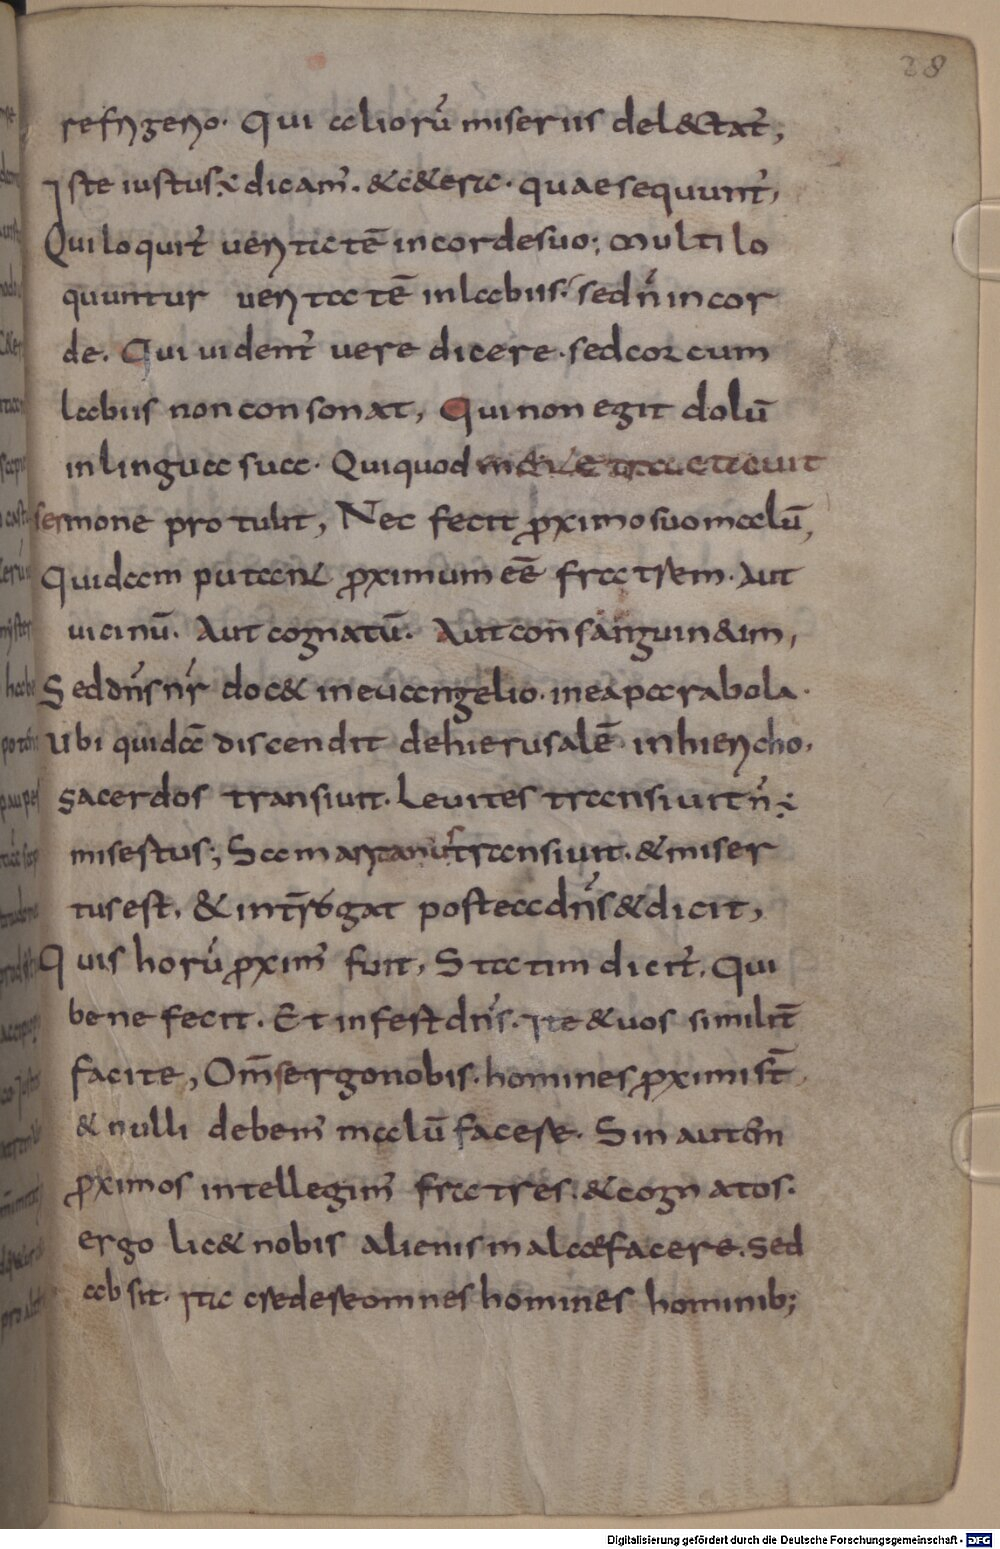 28
refrigerio. Qui aliorū miseriis del&ctat̄,
Iste iustus; dicam̄. &c&era. quae sequunt̄,
Qui loquit̄ veritatē in corde suo; Multi lo
quuntur veritatē in labiis. sed n̄ in cor
de. Qui vident̄ vere dicere. sed cor cum
labiis non consonat, Qui non egit dolū
in lingua sua. Qui quod mente tractavit
sermone protulit, Nec fecit ꝓximo suo malū,
Quidam putant ꝓximum eē fratrem. Aut
vicinū. Aut cognatū. Aut consanguin&im,
Sed dn̄s nr̄ doc& in euangelio. in ea parabola.
Ubi quidā discendit de hierusalē in hiericho,
sacerdos transiuit. Leuites transiuit n̄
misestus; Samaritanus transiuit. & miser
tus est, & intr̄ogat postea dn̄s & dicit,
Quis horū ꝓxim̄ fuit, Statim dicit̄. Qui
bene fecit. Et infest dn̄s. Ite & uos similit̄
facite, Om̄s ergo nobis. homines ꝓximi st̄
& nulli debem̄ malū facere. Sin autem
ꝓximos intellegim̄ fratres. & cognatos.
ergo lic& nobis alienis mala facere. Sed
absit. Ita credere omnes homines hominib;
Digitalisierung gefördert durch die Deutsche Forschungsgemeinschaft - DFG